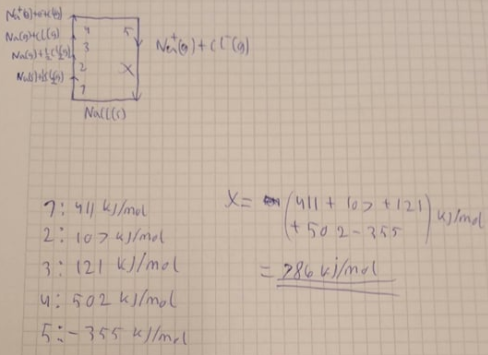 Na⁺(g)+Cl(g)
Na(g)+Cl(g)
Na(g)+½Cl₂(g)
Na(s)+½Cl₂(g)
4
3
2
1
5
X
Na⁺(g)+Cl⁻(g)
NaCl(s)
1: 411 kJ/mol
2: 107 kJ/mol
3: 121 kJ/mol
4: 502 kJ/mol
5: -355 kJ/mol
X= (411 + 107 + 121
+ 502 - 355) kJ/mol
= 786 kJ/mol